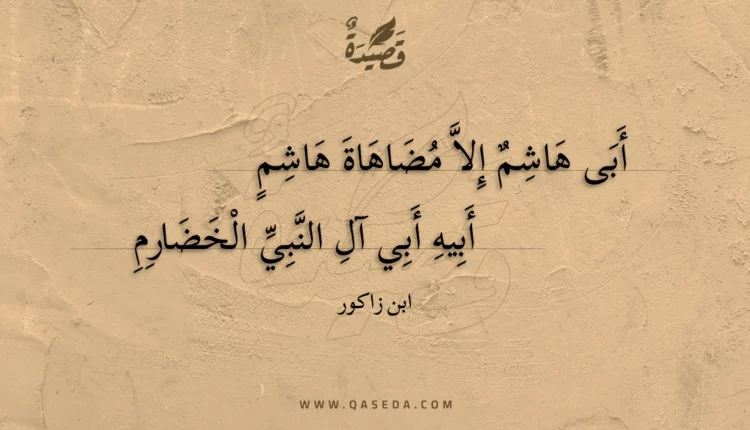 قَصِيْدَةٌ
أَبَى هَاشِمٌ إِلاَّ مُضَاهَاةَ هَاشِمٍ
أَبِيهِ أَبِي آلِ النَّبِيِّ الْخَضَارِمِ
ابن زاكور
WWW.QASEDA.COM